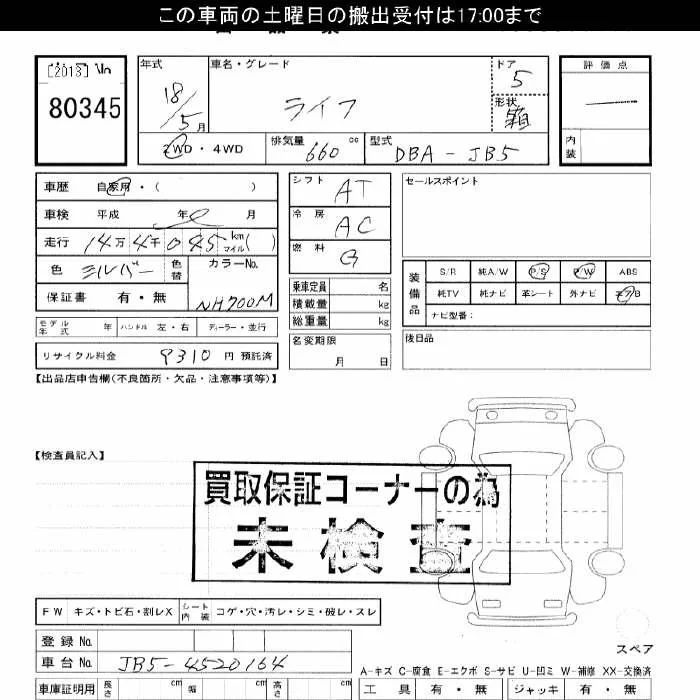 この車両の土曜日の搬出受付は17:00まで
[2013] Vn
80345
年式 車名・グレード ドア 5
18/5月 ライフ 形状 箱
2WD・4WD 排気量 660 cc 型式 DBA-JB5
評価点
内装
車歴 自家用・( )
車検 平成 年 月
走行 14万 4千 045 km マイル( )
色 シルバー 色替 カラーNo.
保証書 有・無 NH700M
モデル年式 年 ハンドル 左・右 ディーラー・並行
リサイクル料金 9310 円 預託済
シフト AT
冷房 AC
燃料 G
乗車定員 名
積載量 kg
総重量 kg
名変期限
月 日
セールスポイント
装備品 S/R 純A/W P/S P/W ABS
純TV 純ナビ 革シート 外ナビ エア/B
ナビ型番:
後日品
【出品店申告欄(不良箇所・欠品・注意事項等)】
【検査員記入】
買取保証コーナーの為
未検査
FW キズ・トビ石・割レX シート内装 コゲ・穴・汚レ・シミ・破レ・スレ
登録 No.
車台 No. JB5-4520164
車庫証明用 長さ cm 幅 cm 高さ cm
スペア
A-キズ C-腐食 E-エクボ S-サビ U-凹ミ W-補修 XX-交換済
工具 有・無 ジャッキ 有・無